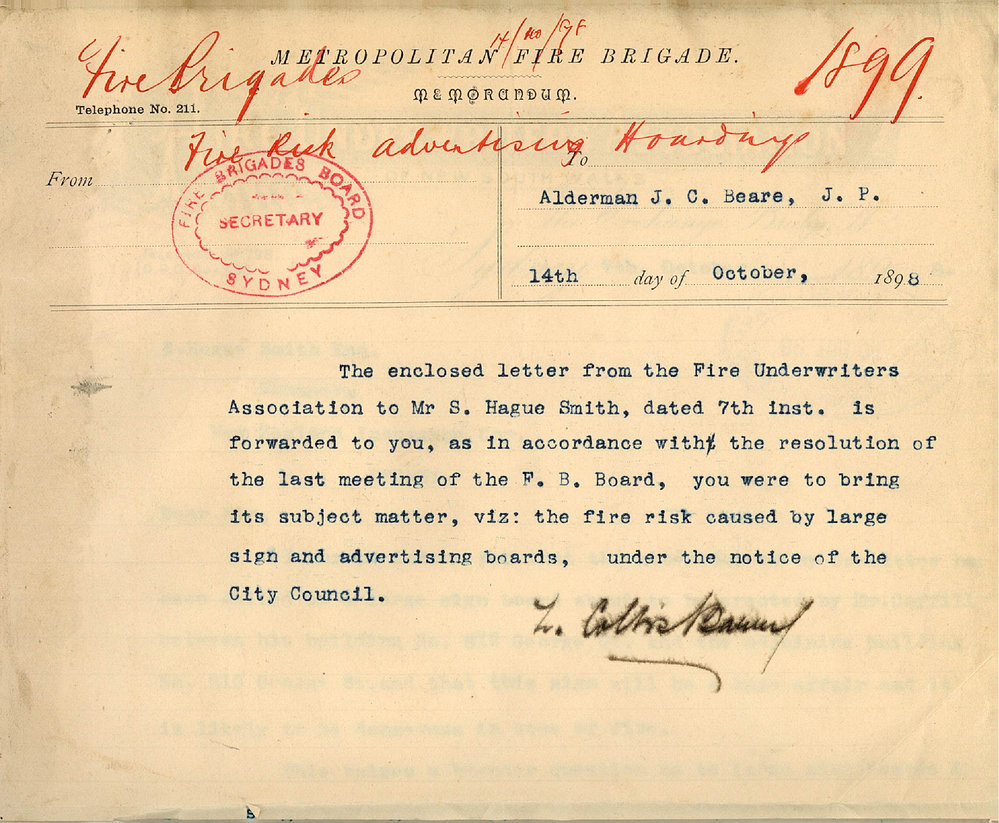 14/10/98
METROPOLITAN FIRE BRIGADE.
Fire Brigades
1899
MEMORANDUM.
Telephone No. 211.
Fire Risk advertising Hoardings
From
To
FIRE BRIGADES BOARD
SECRETARY
SYDNEY
Alderman J. C. Beare, J. P.
14th day of October, 1898
The enclosed letter from the Fire Underwriters
Association to Mr S. Hague Smith, dated 7th inst. is
forwarded to you, as in accordance with the resolution of
the last meeting of the F. B. Board, you were to bring
its subject matter, viz: the fire risk caused by large
sign and advertising boards, under the notice of the
City Council.